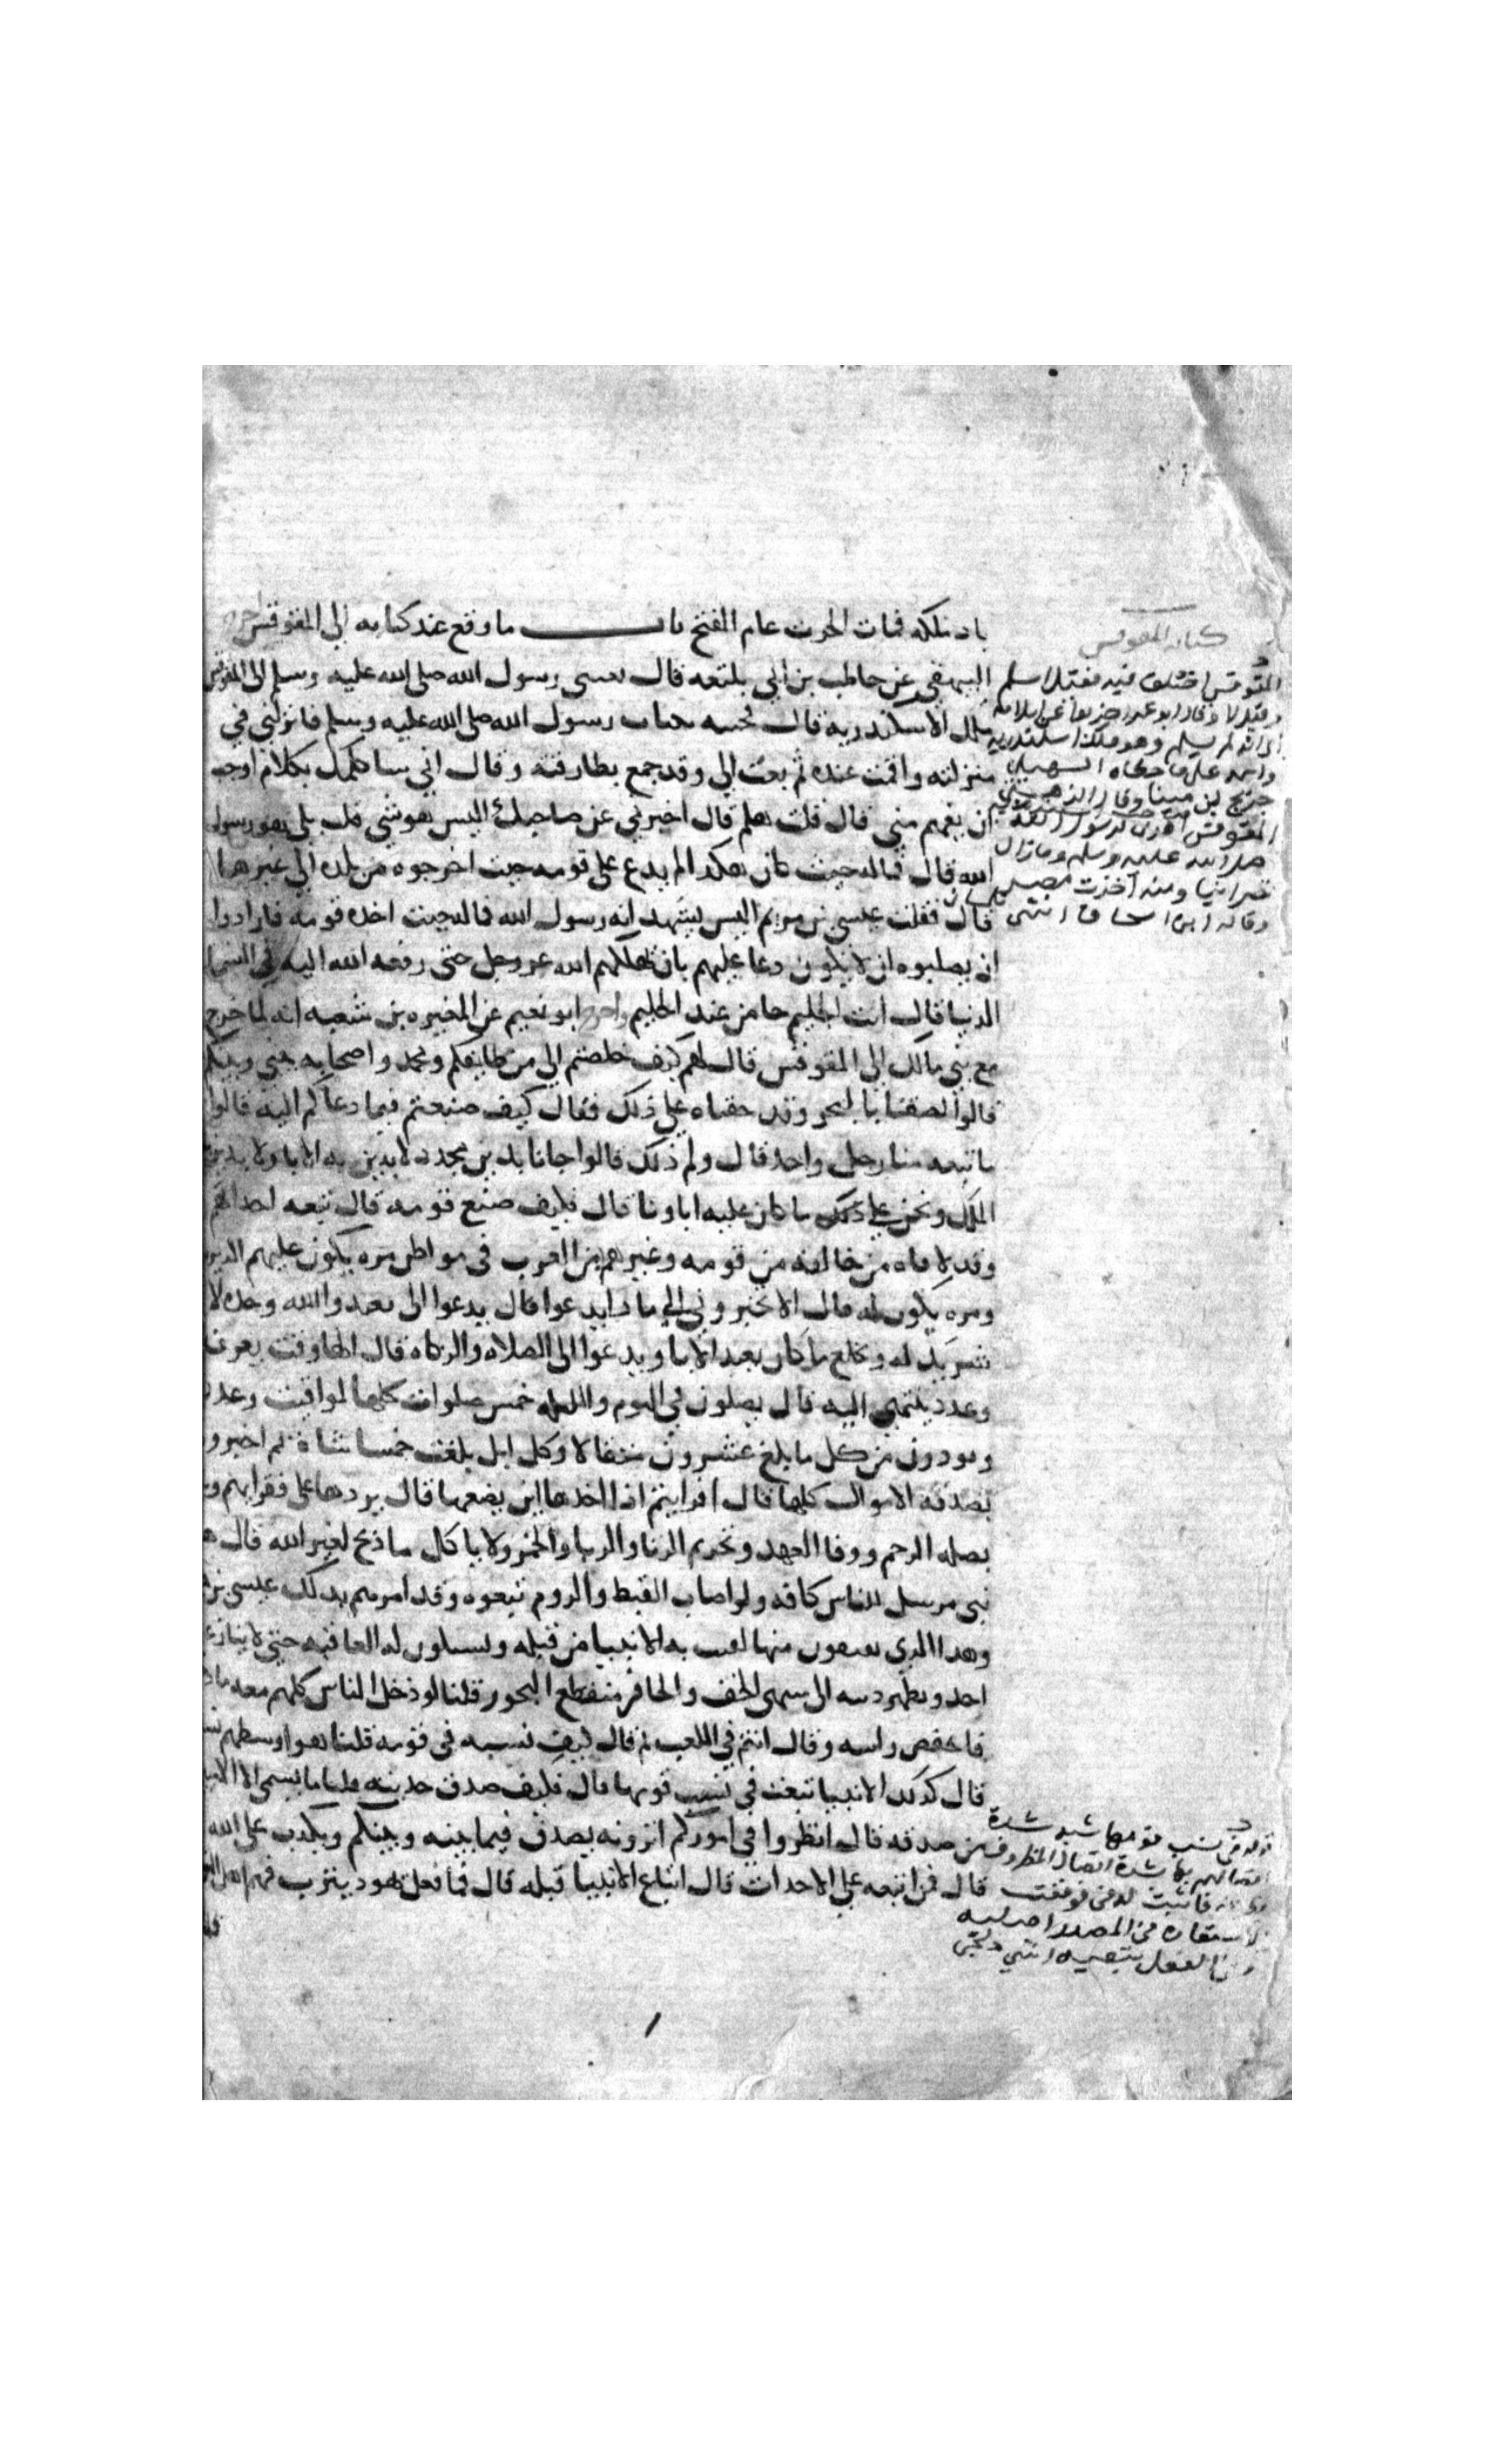 باد ملكه فمات الحرث عام الفتح باب ما وقع عند كتابه الى المقوقس اخرج
البيهقي عن حاطب بن ابي بلتعه قال بعثني رسول الله صلى الله عليه وسلم الى المقوقس
ملك الاسكندريه قال فجيته بكتاب رسول الله صلى الله عليه وسلم فانزلني في
منزلته واقمت عنده ثم بعث الي وقد جمع بطارقته وقال اني ساكلمك بكلام اوجب
ان يفهم مني قال قلت هلم قال اخبرني عن صاحبك اليس هو نبي قلت بلى هو رسول
الله قال فماله حيث كان هكذا لم يدع على قومه حيث اخرجوه من بلده الى غيرها
قال فقلت عيسى بن مريم اليس يشهد انه رسول الله فما له حيث اخذه قومه فارادوا
ان يصلبوه ان لا يكون دعا عليهم بان يهلكهم الله عز وجل حتى رفعه الله اليه في السما
الدنيا قال انت الحليم جا من عند الحليم واخرج ابو نعيم عن المغيره بن شعبه انه لما خرج
مع بني مالك الى المقوقس قال لهم كيف خلصتم الي من طايفكم ومحمد واصحابه بيني وبينكم
قالوا لصقنا بالبحر وقد خفناه على ذلك فقال كيف صنعتم فيما دعاكم اليه قالوا
ما تبعه منا رجل واحد قال ولم ذلك قالوا جانا بدين مجدد لا يدين به الابا ولا يدين
الملك ونحن على ذلك ما كان عليه اباونا قال فكيف صنع قومه قال تبعه احداثهم
وقد لاقاه من خالفه من قومه وغيرهم من العرب في مواطن مره يكون عليهم الدبره
ومره يكون له قال الا تخبروني الى ماذا يدعوا قال يدعوا الى نعبدوا الله وحده لا
شريك له ونخلع ما كان يعبد الابا ويدعوا الى الصلاه والزكاه قال الها وقت يعرف
وعدد ينتهي اليه قال يصلون في اليوم والليله خمس صلوات كلها لمواقيت وعدد
ويودون من كل ما بلغ عشرون مثقالا وكل ابل بلغت خمسا شاة ثم اخبروه
بصدقه الاموال كلها قال افرايتم اذا اخذها اين يضعها قال يردها على فقرايهم
بصله الرحم ووفا العهد وتحريم الزنا والربا والخمر ولا ياكل ما ذبح لغير الله قال هو
نبي مرسل للناس كافه ولو اصاب القبط والروم تبعوه وقد امرهم بذلك عيسى بن
وهذا الذي تصفون منه بعث به الانبيا من قبله وستكون له العاقبه حتى لا ينازعه
احد ويظهر دينه الى منتهى الخف والحافر ومنقطع البحور قلنا لو دخل الناس كلهم معه ما
فانغض راسه وقال انتم في اللعب ثم قال كيف نسبه في قومه قلنا هو اوسطهم
قال كذلك الانبيا تبعث في نسب قومها قال فكيف صدق حديثه قلنا ما يسمى الا الامين
من صدقه قال انظروا في اموركم اترونه يصدق فيما بينه وبينكم ويكذب على الله
قال فمن اتبعه على الاحداث قال اتباع الانبيا قبله قال فما فعل يهود يثرب فهم اهل
كتاب المقوقس
المقوقس اختلف فيه فقيل اسلم
وقيل لا
انه لم يسلم وهو ملك اسكندريه
واسمه على ما حكاه السهيلي
جريج بن مينا وقال الذهبي
المقوقس اهدى لرسول الله
صلى الله عليه وسلم وما زال
نصرانيا ومنه اخذت مصر
وقاله ابن اسحاق انتهى
قوله في نسب قومها شبه شدة
اتصالهم بها شدة اتصال المظروف
فاثبت له في فوقعت
الاستعارة في المصدر اصليه
الفعل بتبعيه انتهى